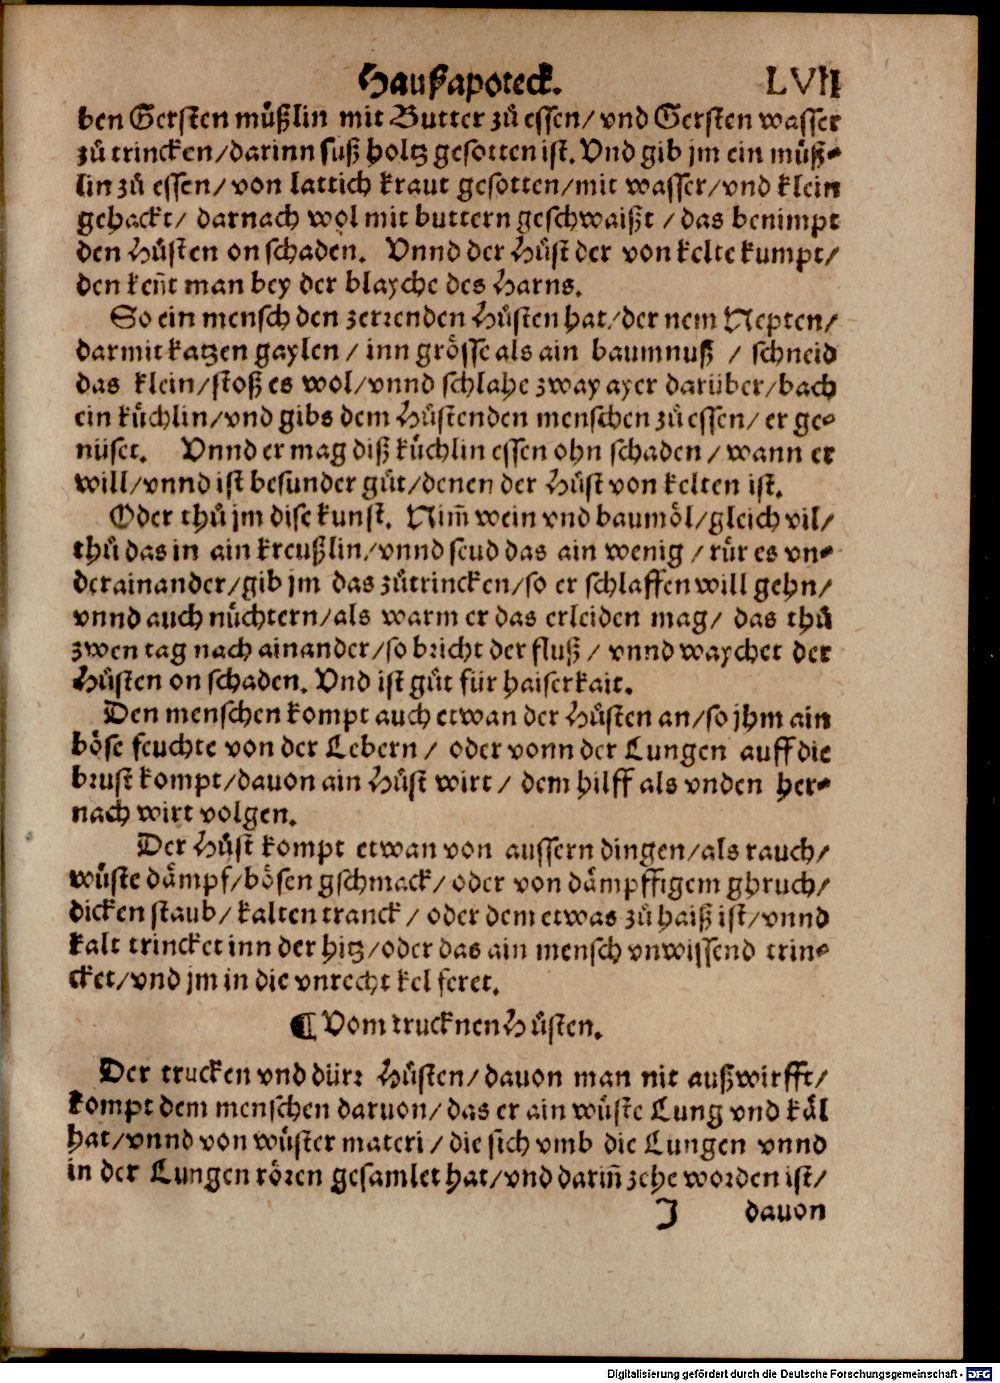 Haußapoteck. LVII
ben Gersten muͤßlin mit Butter zuͦ essen/ vnd Gersten wasser
zuͦ trincken/darinn suß holtz gesotten ist. Vnd gib jm ein muͤß-
lin zuͦ essen/von lattich kraut gesotten/mit wasser/vnd klein
gehackt/ darnach wol mit buttern geschwaißt / das benimpt
den Huͦsten on schaden. Vnnd der Huͦst der von kelte kumpt/
den keñt man bey der blayche des Harns.
So ein mensch den zerrenden Huͦsten hat/der nem Nepten/
darmit katzen gaylen / inn groͤsse als ain baumnuß / schneid
das klein/stoß es wol/vnnd schlahe zway ayer darüber/bach
ein kuͤchlin/vnd gibs dem Huͦstenden menschen zuͦ essen/ er ge-
niiset. Vnnd er mag diß kuͤchlin essen ohn schaden / wann er
will/vnnd ist besunder guͦt/denen der Huͦst von kelten ist.
Oder thuͦ jm dise kunst. Nim̃ wein vnd baumoͤl/gleich vil/
thuͦ das in ain kreußlin/vnnd seud das ain wenig / ruͤr es vn-
derainander/gib jm das zuͦtrincken/so er schlaffen will gehn/
vnnd auch nuͤchtern/als warm er das erleiden mag/ das thuͦ
zwen tag nach ainander/so bricht der fluß / vnnd waychet der
Huͦsten on schaden. Vnd ist guͦt für haiserkait.
Den menschen kompt auch etwan der Huͦsten an/so jhm ain
boͤse feuchte von der Lebern / oder vonn der Lungen auff die
brust kompt/dauon ain Huͦst wirt / dem hilff als vnden her-
nach wirt volgen.
Der Huͦst kompt etwan von aussern dingen/als rauch/
wuͤste daͤmpf/boͤsen gschmack/ oder von daͤmpffigem ghruch/
dicken staub/ kalten tranck / oder dem etwas zuͦ haiß ist/vnnd
kalt trincket inn der hitz/oder das ain mensch vnwissend trin-
cket/vnd jm in die vnrecht kel feret.
¶ Vom trucknen Huͦsten.
Der trucken vnd dürr Huͦsten/dauon man nit außwirfft/
kompt dem menschen daruon/das er ain wuͤste Lung vnd kaͤl
hat/vnnd von wuͤster materi / die sich vmb die Lungen vnnd
in der Lungen roͤren gesamlet hat/vnd darin̄ zehe worden ist/
J dauon
Digitalisierung gefördert durch die Deutsche Forschungsgemeinschaft - DFG